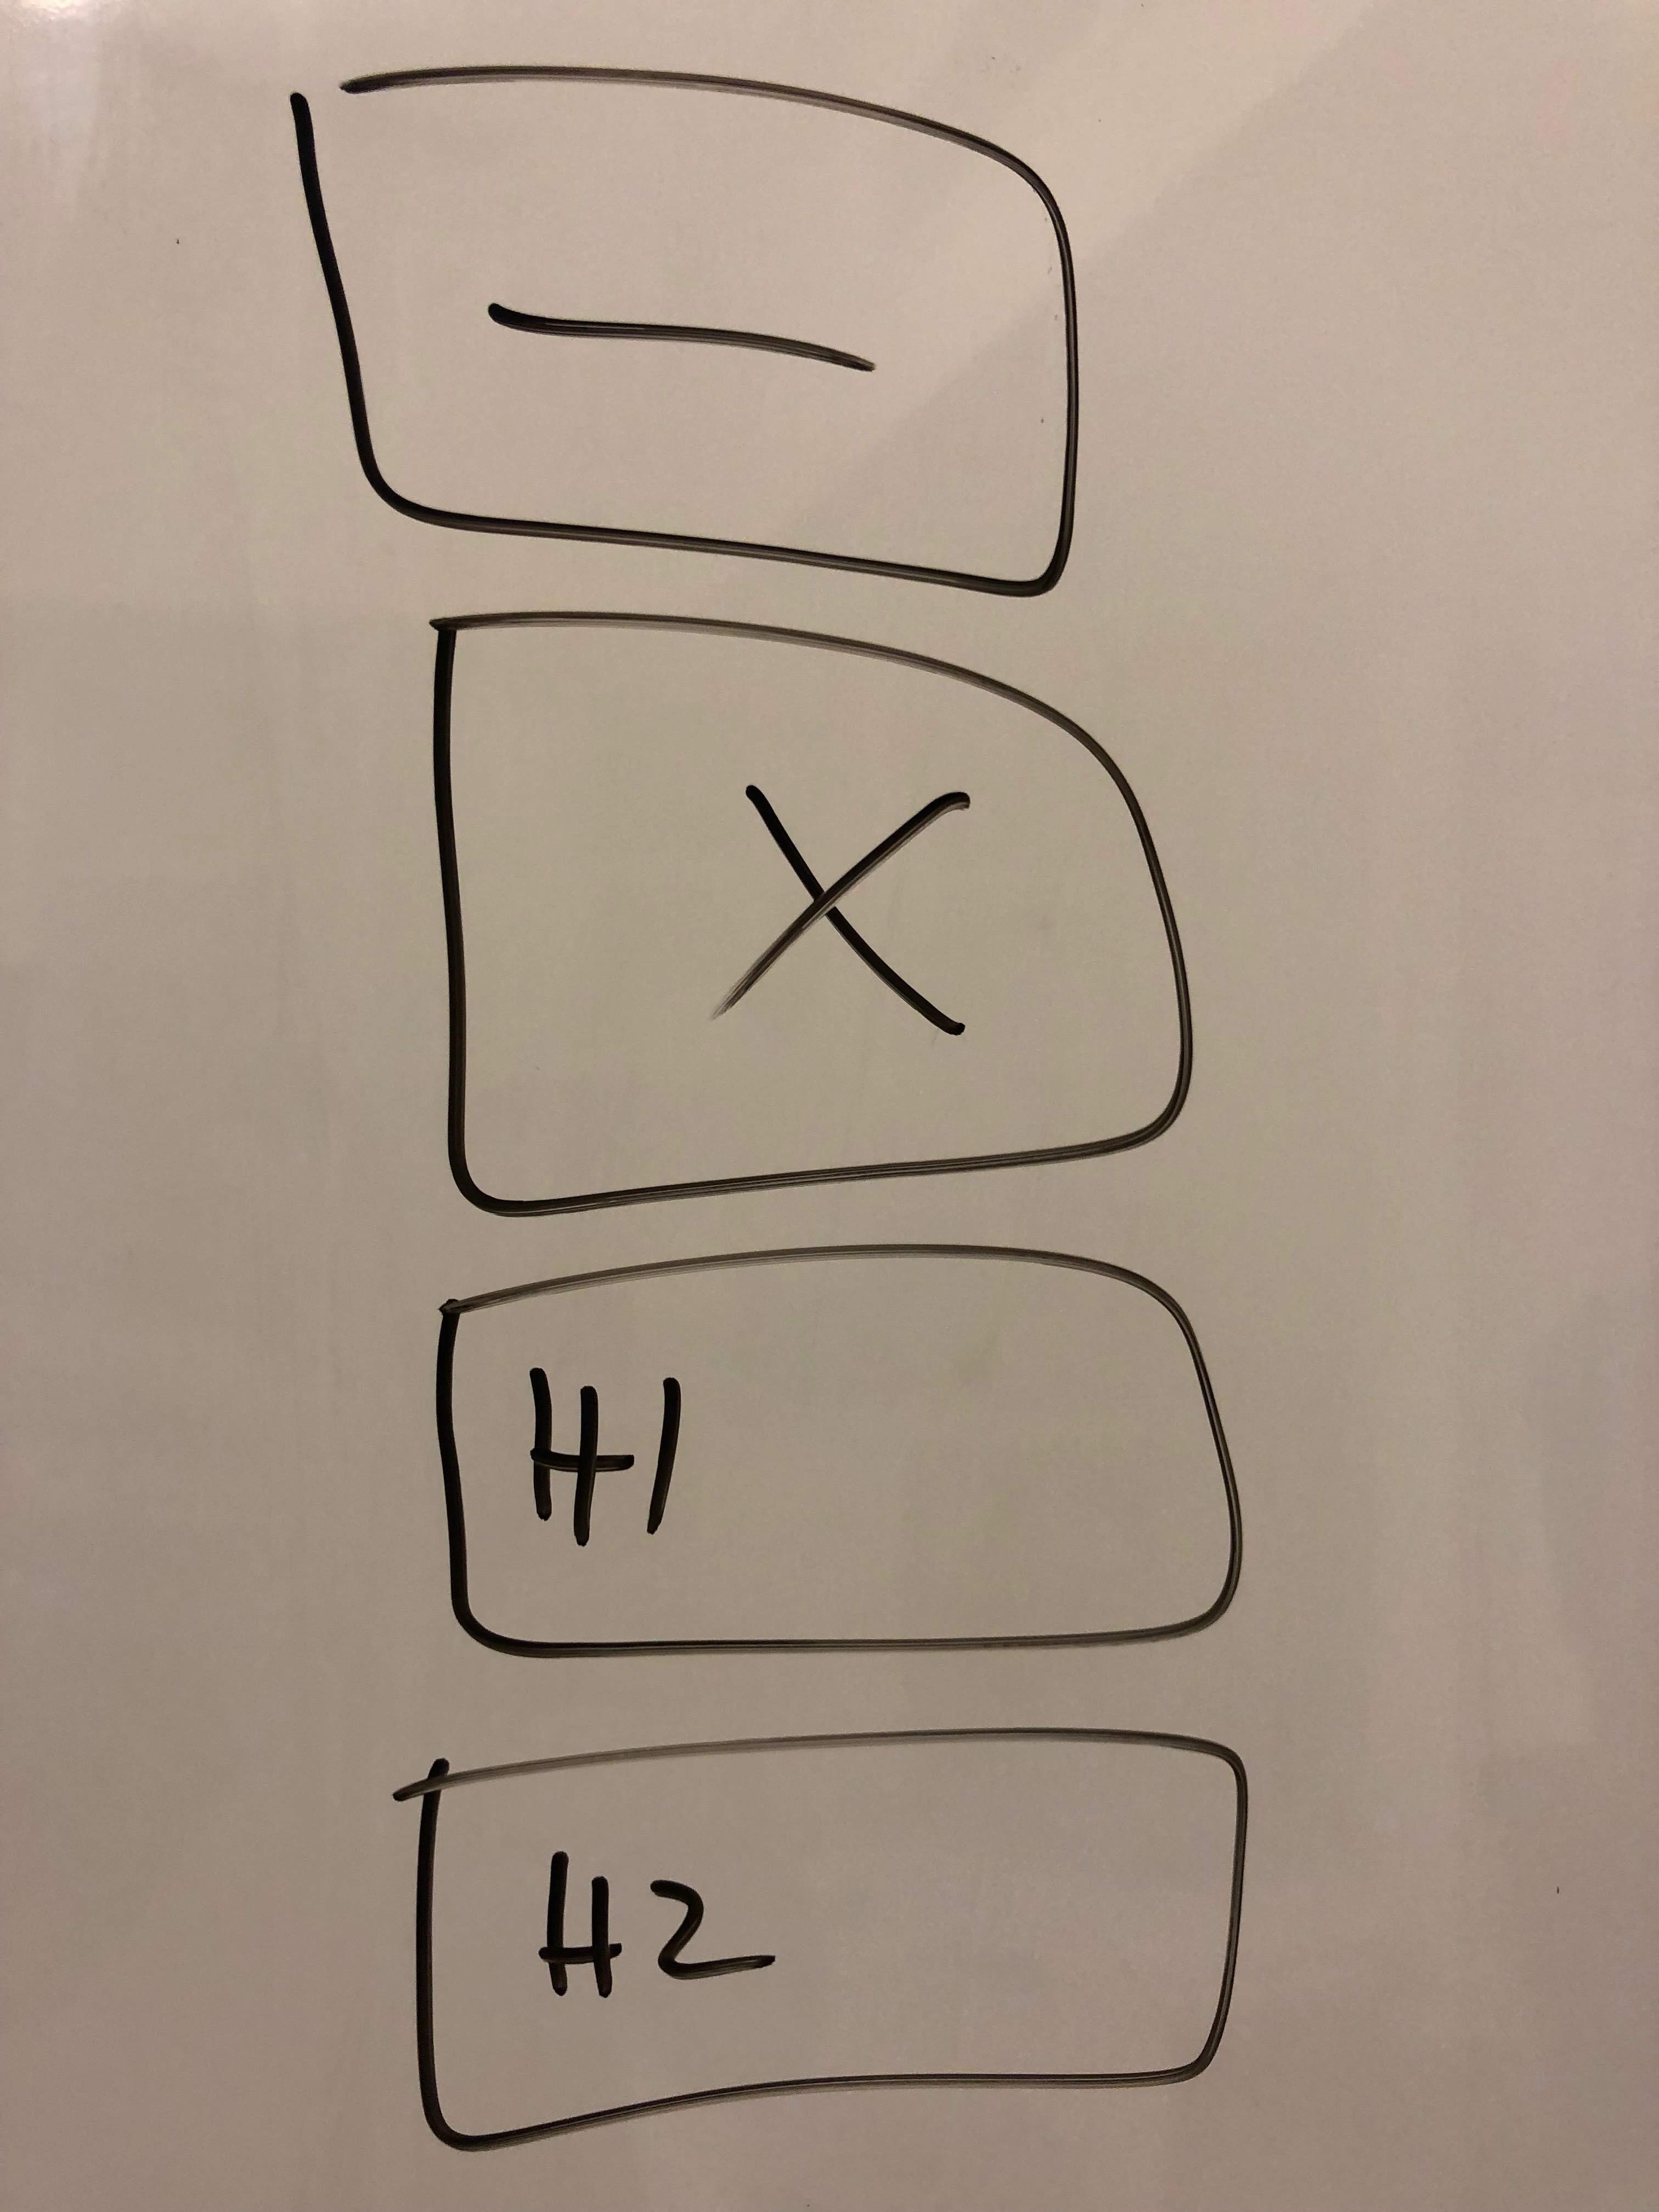 —
X
H1
H2